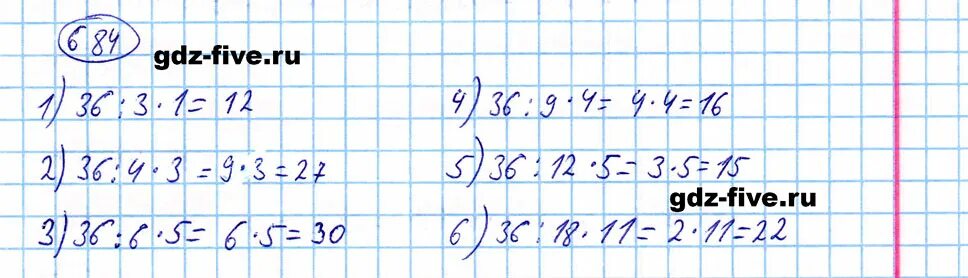 684
gdz-five.ru
1) 36 : 3 · 1 = 12
2) 36 : 4 · 3 = 9 · 3 = 27
3) 36 : 6 · 5 = 6 · 5 = 30
4) 36 : 9 · 4 = 4 · 4 = 16
5) 36 : 12 · 5 = 3 · 5 = 15
gdz-five.ru
6) 36 : 18 · 11 = 2 · 11 = 22